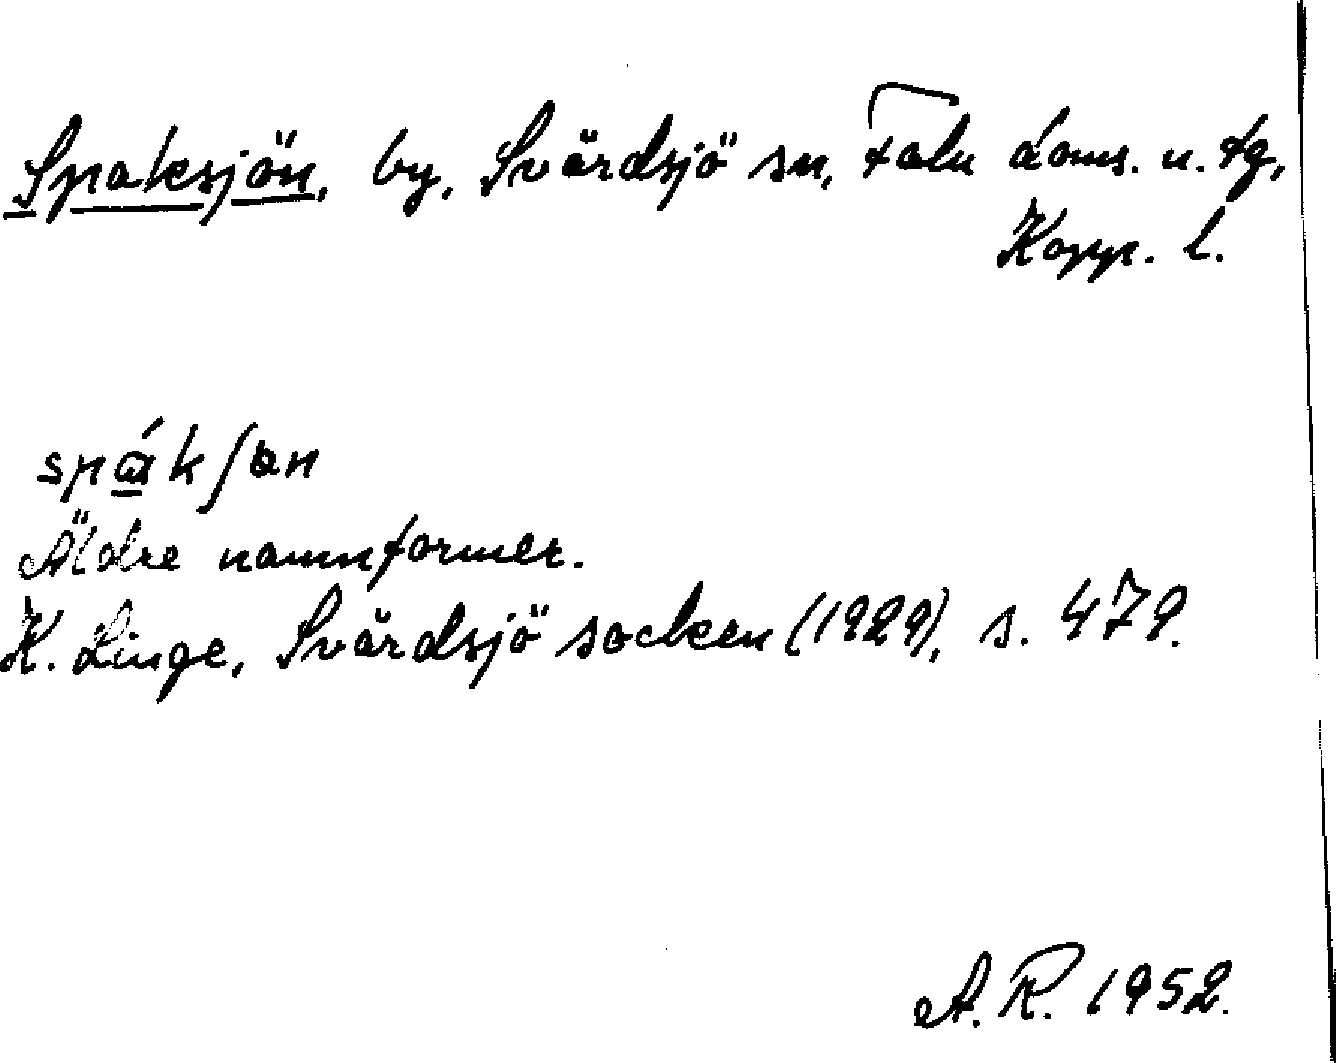 Spaksjön, by, Svärdsjö sn, Falu doms. u. tg,
Kopp. l.
Äldre namnformer.
K. Linge, Svärdsjö socken (1929), s. 479.
A. R. 1952.